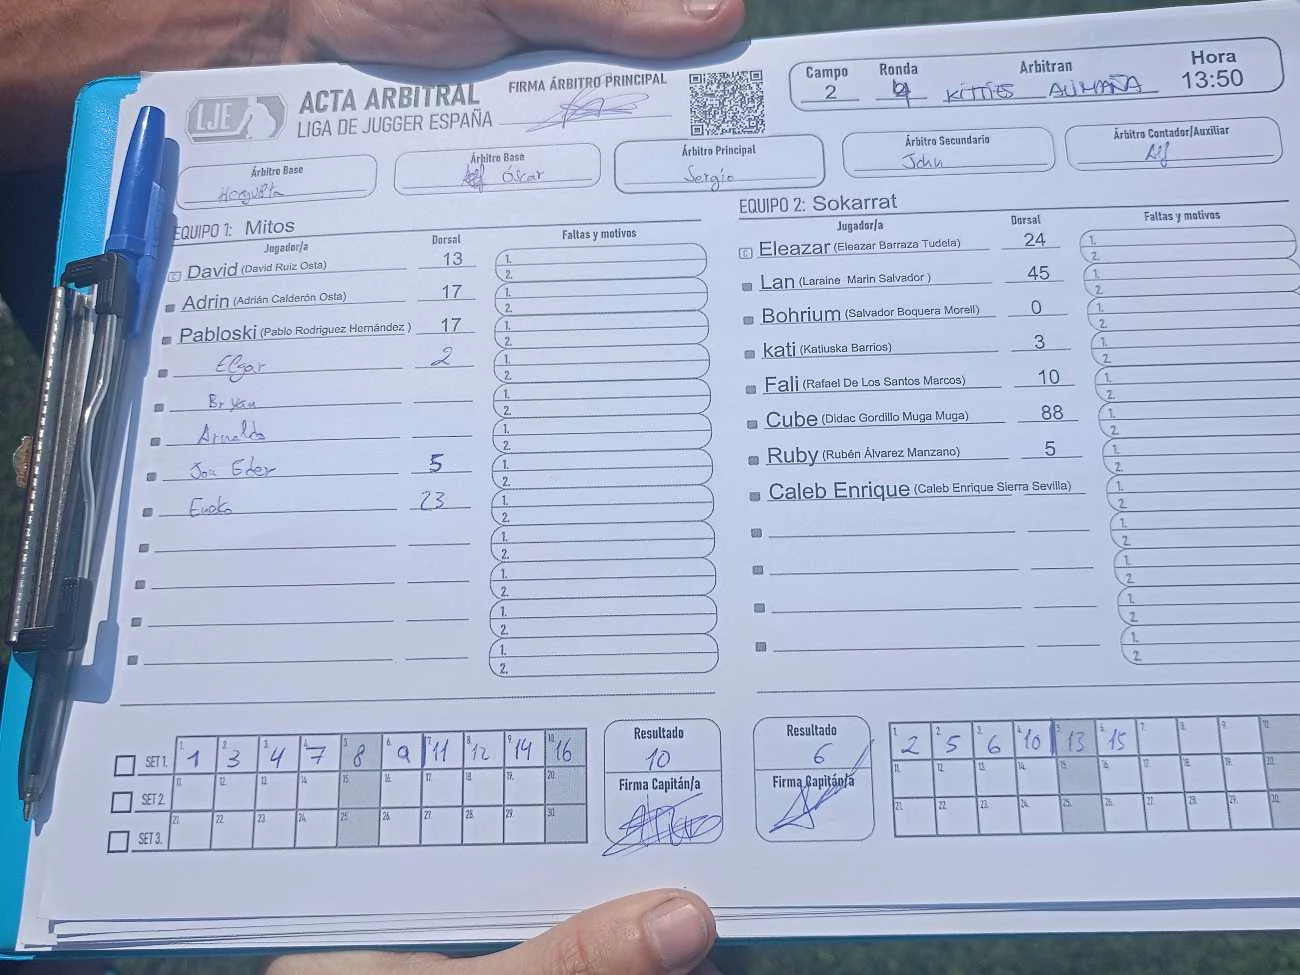 LJE
ACTA ARBITRAL
LIGA DE JUGGER ESPAÑA
FIRMA ÁRBITRO PRINCIPAL
Campo Ronda Arbitran Hora
2 4 KITTIES ALIMAÑA 13:50
Árbitro Base
Árbitro Base
Óscar
Árbitro Principal
Sergio
Árbitro Secundario
John
Árbitro Contador/Auxiliar
EQUIPO 1: Mitos
Jugador/a Dorsal Faltas y motivos
C David (David Ruiz Osta) 13 1. 2.
Adrin (Adrián Calderón Osta) 17 1. 2.
Pabloski (Pablo Rodríguez Hernández ) 17 1. 2.
Elgar 2 1. 2.
Bryan 1. 2.
Arnaldo 1. 2.
Jon Eder 5 1. 2.
Eneko 23 1. 2.
1. 2.
1. 2.
1. 2.
1. 2.
EQUIPO 2: Sokarrat
Jugador/a Dorsal Faltas y motivos
C Eleazar (Eleazar Barraza Tudela) 24 1. 2.
Lan (Laraine Marin Salvador ) 45 1. 2.
Bohrium (Salvador Boquera Morell) 0 1. 2.
kati (Katiuska Barrios) 3 1. 2.
Fali (Rafael De Los Santos Marcos) 10 1. 2.
Cube (Didac Gordillo Muga Muga) 88 1. 2.
Ruby (Rubén Álvarez Manzano) 5 1. 2.
Caleb Enrique (Caleb Enrique Sierra Sevilla) 1. 2.
1. 2.
1. 2.
1. 2.
1. 2.
SET 1. 1 3 4 7 8 9 11 12 14 16
SET 2. 11. 12. 13. 14. 15. 16. 17. 18. 19. 20.
SET 3. 21. 22. 23. 24. 25. 26. 27. 28. 29. 30.
Resultado
10
Firma Capitán/a
Resultado
6
Firma Capitán/a
2 5 6 10 13 15
11. 12. 13. 14. 15. 16. 17. 18. 19. 20.
21. 22. 23. 24. 25. 26. 27. 28. 29. 30.